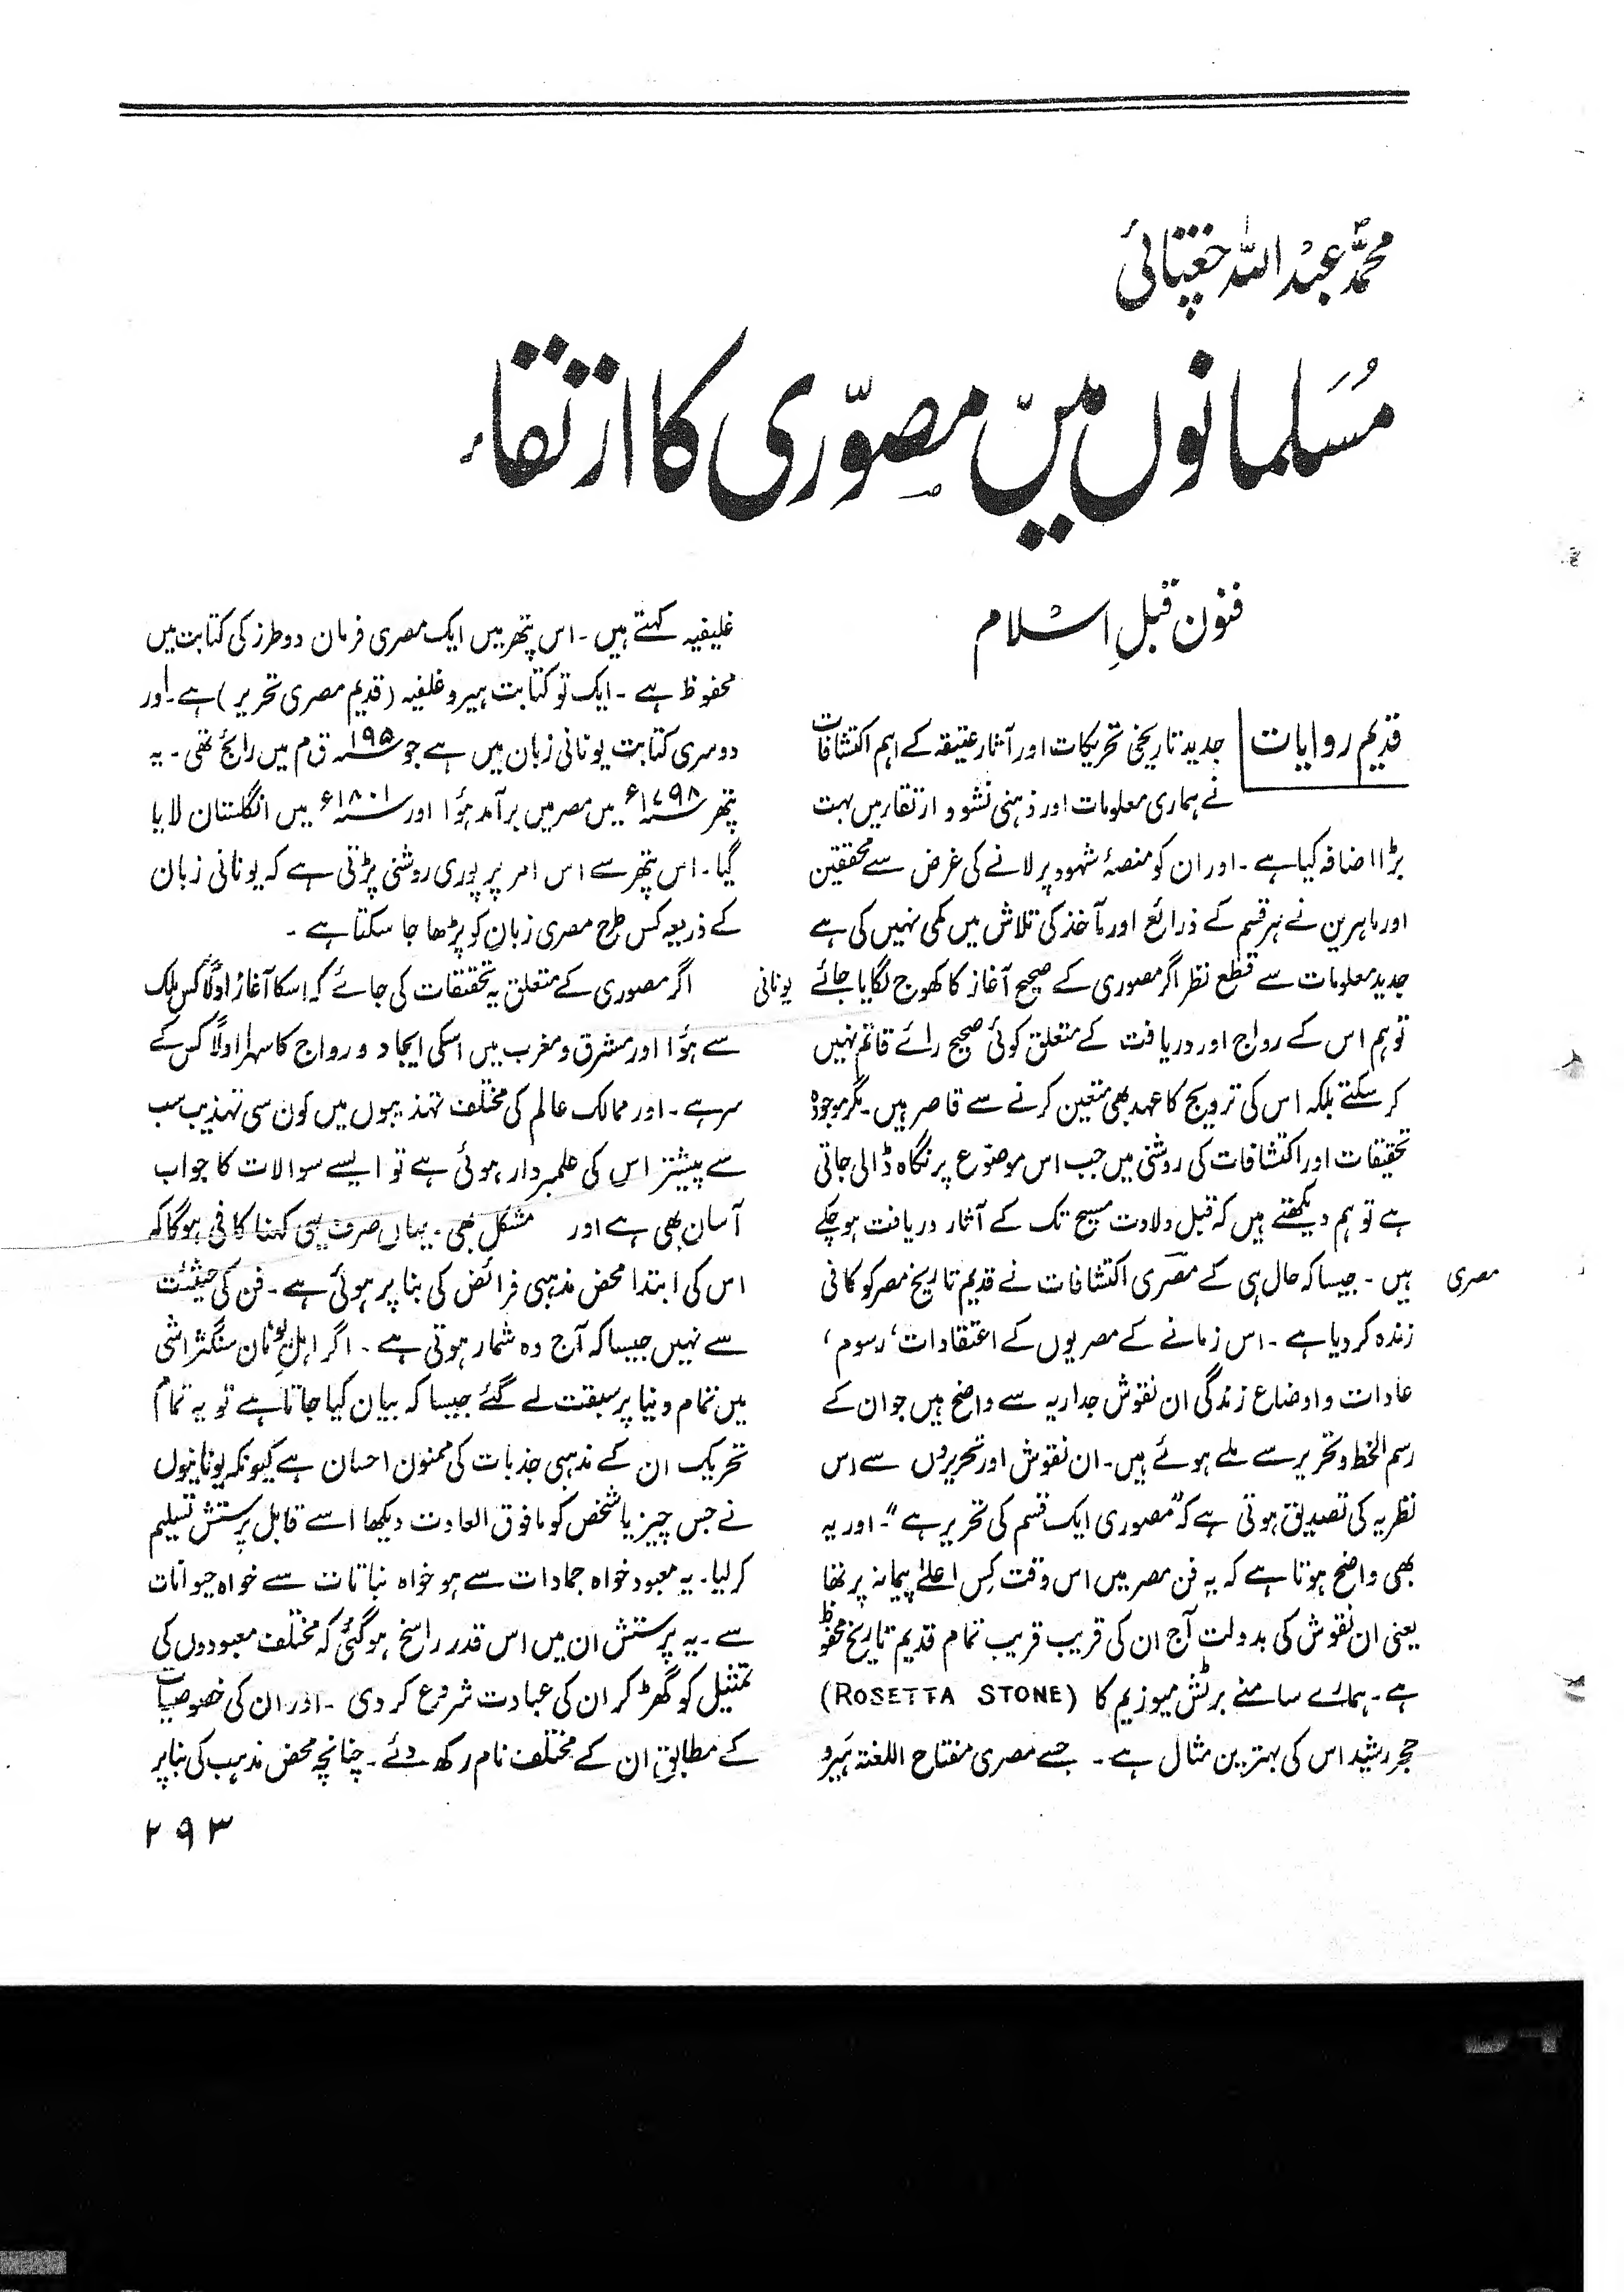 محمد عبد اللہ چغتائی
مسلمانوں میں مصوّری کا ارتقاء
فنون قبلِ اسلام
قدیم روایات
جدید تاریخی تحریکات اور آثار عتیقہ کے اہم اکتشافات
نے ہماری معلومات اور ذہنی نشو و ارتقار میں بہت
بڑا اضافہ کیا ہے ۔ اور ان کو منصۂ شہود پر لانے کی غرض سے محققین
اور ماہرین نے ہر قسم کے ذرائع اور مآخذ کی تلاش میں کمی نہیں کی ہے
جدید معلومات سے قطع نظر اگر مصوری کے صحیح آغاز کا کھوج لگایا جائے
تو ہم اس کے رواج اور دریافت کے متعلق کوئی صحیح رائے قائم نہیں
کر سکتے بلکہ اس کی ترویج کا عہد بھی متعین کرنے سے قاصر ہیں ۔ مگر موجودہ
تحقیقات اور اکتشافات کی روشنی میں جب اس موضوع پر نگاہ ڈالی جاتی
ہے تو ہم دیکھتے ہیں کہ قبل ولادت مسیح تک کے آثار دریافت ہو چکے
مصری
ہیں ۔ جیسا کہ حال ہی کے مصری اکتشافات نے قدیم تاریخ مصر کو کافی
زندہ کر دیا ہے ۔ اس زمانے کے مصریوں کے اعتقادات، رسوم،
عادات و اوضاع زندگی ان نقوش جداریہ سے واضح ہیں جو ان کے
رسم الخط و تحریر سے ملے ہوئے ہیں ۔ ان نقوش اور تحریروں سے اس
نظریہ کی تصدیق ہوتی ہے کہ "مصوری ایک قسم کی تحریر ہے" ۔ اور یہ
بھی واضح ہوتا ہے کہ یہ فن مصر میں اس وقت کِس اعلےٰ پیمانہ پر تھا
یعنی ان نقوش کی بدولت آج ان کی قریب قریب تمام قدیم تاریخ محفوظ
ہے ۔ ہمارے سامنے برٹش میوزیم کا (ROSETTA STONE)
حجر رشید اس کی بہترین مثال ہے ۔ جسے مصری مفتاح اللغۃ ہَیرو
غلیفیہ کہتے ہیں ۔ اس پتھر میں ایک مصری فرمان دو طرز کی کتابت میں
محفوظ ہے ۔ ایک تو کتابت ہیرو غلفیہ (قدیم مصری تحریر) ہے ۔ اور
دوسری کتابت یونانی زبان میں ہے جو ۱۹۵؁ ق م میں رائج تھی ۔ یہ
پتھر ۱۷۹۸؁ء میں مصر میں برآمد ہؤا اور ۱۸۰۱؁ء میں انگلستان لایا
گیا ۔ اس پتھر سے اس امر پر پوری روشنی پڑتی ہے کہ یونانی زبان
کے ذریعہ کس طرح مصری زبان کو پڑھا جا سکتا ہے ۔
یونانی
اگر مصوری کے متعلق یہ تحقیقات کی جائے کہ اسکا آغاز اولاً کس ملک
سے ہؤا اور مشرق و مغرب میں اسکی ایجاد و رواج کا سہرا اولاً کس کے
سر ہے ۔ اور ممالک عالم کی مختلف تہذیبوں میں کون سی تہذیب سب
سے پیشتر اس کی علمبردار ہوئی ہے تو ایسے سوالات کا جواب
آسان بھی ہے اور مشکل بھی ۔ یہاں صرف یہی کہنا کافی ہوگا کہ
اس کی ابتدا محض مذہبی فرائض کی بنا پر ہوئی ہے ۔ فن کی حیثیت
سے نہیں جیسا کہ آج وہ شمار ہوتی ہے ۔ اگر اہلِ یونان سنگتراشی
میں تمام دنیا پر سبقت لے گئے جیسا کہ بیان کیا جاتا ہے تو یہ تمام
تحریک ان کے مذہبی جذبات کی ممنون احسان ہے کیونکہ یونانیوں
نے جس چیز یا شخص کو مافوق العادت دیکھا اسے قابل پرستش تسلیم
کر لیا ۔ یہ معبود خواہ جمادات سے ہو خواہ نباتات سے خواہ حیوانات
سے ۔ یہ پرستش ان میں اس قدر راسخ ہوگئی کہ مختلف معبودوں کی
تمثیل کو گھڑ کر ان کی عبادت شروع کر دی ۔ اور ان کی خصوصیات
کے مطابق ان کے مختلف نام رکھ دئے ۔ چنانچہ محض مذہب کی بنا پر
۲۹۳